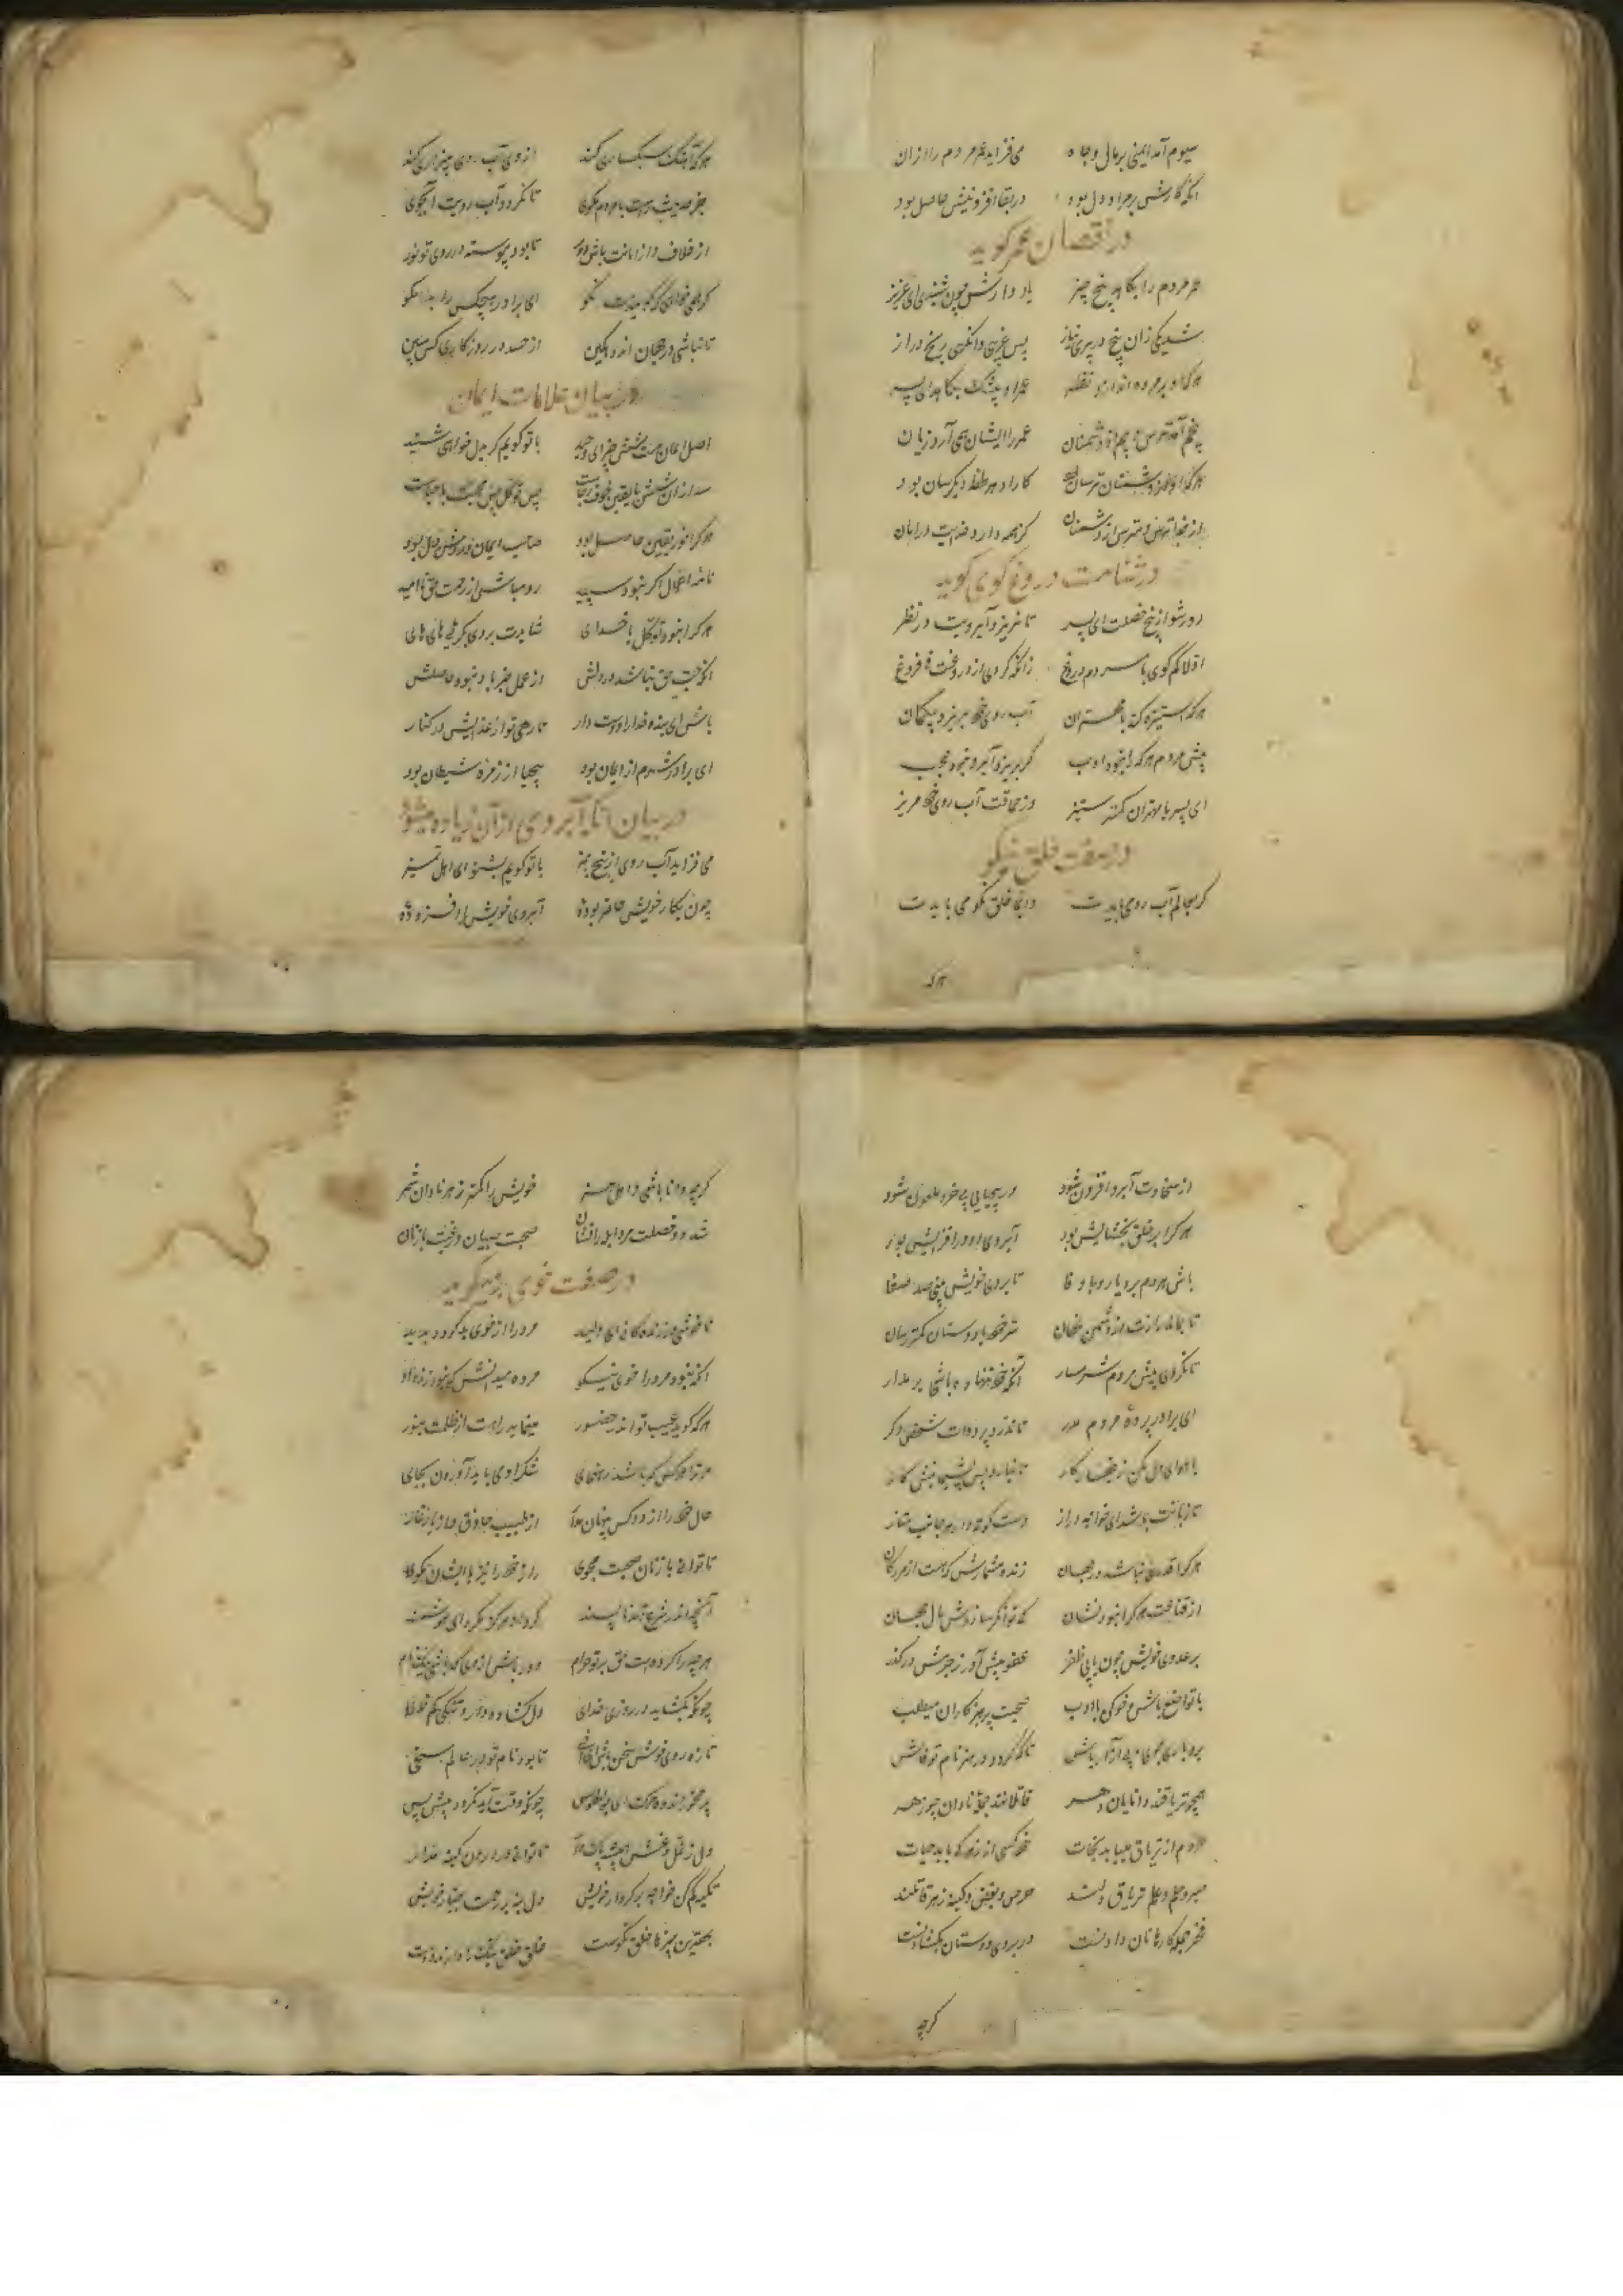 سیوم آمد ایمنی بر مال و جاه می فزاید عمر مردم را ازان
آنکه کارش بر مراد دل بود در بقا افزونیش حاصل بود
در نقصان عمر کوید
عمر مردم را بکاهد پنج چیز یاد دارش چون شنیدی ای عزیز
شد یکی زان پنج در پیری نیاز پس غریبی وانکهی رنج دراز
هرکه او بر مرده اندازد نظر عمر او بیشک بکاهد ای پسر
پنجم آمد ترس و بیم از دشمنان عمر را ایشان همی آرد زیان
هرکه او از دشمنان ترسان بود کار او هر لحظه دیکرسان بود
از خدا ترس و مترس از دشمنان کز همه دارد خدایت در امان
در شامت دروغ کوی کوید
دور شو از پنج خصلت ای پسر تا نریزد آبرویت در نظر
اولا کم کوی با مردم دروغ زانکه کردی از دروغت بی فروغ
هرکه استیزه کند با مهتران آب روی خود بریزد بیکمان
پیش مردم هرکرا نبود ادب کر بریزد آبرو نبود عجب
ای پسر با مهتران کمتر ستیز وز حماقت آب روی خود مریز
در صفت خلق نیکو
کر بعالم آب روی بایدت دایما خلق نکو می بایدت
هرکه
هرکه آهنک سبکساری کند از وی آب روی بیزاری کند
جز حدیث راست با مردم مکوی تا نکردد آب رویت آبجوی
از خلاف و از امانت باش دور تا بود پیوسته در روی تو نور
کر همی خواهی که کویندت نکو ای برادر هیچکس را بد مکو
تا نباشی در جهان اندوهکین از حسد در روزکار کس مبین
در بیان علامات ایمان
اصل ایمان هست شش چیز ای وحید با تو کویم کر بدل خواهی شنید
سه ازان شش با یقین خوف و رجاست پس توکل پس محبت با حیاست
هرکرا نور یقین حاصل بود صاحب ایمان و روشن دل بود
نامه اعمال اکر نبود سپید رو مباش از رحمت حق ناامید
هرکرا نبود توکل با خدای شایدت بروی کریی های های
آنکه حب حق نباشد در دلش از عمل جز باد نبود حاصلش
باش ای بنده خدا را دوست دار تا رهی تو از عذابش در کنار
ای برادر شرم از ایمان بود بیحیا از زمره شیطان بود
در بیان آنکه آبروی از آن زیاده میشود
می فزاید آب روی از پنج چیز با تو کویم بشنو ای اهل تمیز
چون بکار خویش حاضر بوده آبروی خویش را افزوده
از سخاوت آبرو افزون شود وز بخیلی بی خرد ملعون شود
هرکرا بر خلق بخشایش بود آبروی او در افزایش بود
باش مردم بردبار و با وفا تا بروی خویش بینی صد صفا
تا بماند رازت از دشمن نهان سر خود با دوستان کمتر رسان
تا نکردی پیش مردم شرمسار آنکه خود ننهاده باشی بر مدار
ای برادر پرده مردم مدر تا ندرد پرده ات شخص دکر
با هوای دل مکن زنهار کار تا نیارد پس پشیمانیش بار
تا زبانت باشد ای خواجه دراز دست کوته دار هر جانب متاز
هرکرا قدری نباشد در جهان زنده مشمارش که هست از مردکان
از قناعت هرکرا نبود نشان کی توانکر سازدش مال جهان
بر عدوی خویش چون یابی ظفر عفو پیش آور ز جرمش درکذر
با تواضع باش و خو کن با ادب صحبت پرهیزکاران میطلب
بردباری جوی و بی آزار باش تا که کردد در هنر نام تو فاش
همچو تریاقند دانایان دهر قاتلانند جمله نادان چو زهر
مردم از تریاق مییابد نجات خود کسی از زهر کی یابد حیات
صبر و حلم و علم تریاق دلند حرص و بغض و کینه زهر قاتلند
فخر جمله کارها نان دادنست در بروی دوستان بکشادنست
کرچه
کرچه دانا باشی و اهل هنر خویش را کمتر ز هر نادان شمر
شد دو خصلت مرد ابله را نشان صحبت صبیان و رغبت با زنان
در صفت خوی بد میکوید
ناخوشی در زندکانی ای ولید مرد را از خوی بد کردد پدید
آنکه نبود مرد را خوی نیکو مرده میدانش که نبود زنده او
هرکه کوید عیب تو اندر حضور مینماید راهت از ظلمت بنور
مر ترا هر کس که باشد رهنمای شکر او باید آوردن بجای
حال خود را از دو کس پنهان مدار از طبیب حاذق و از یار غار
تا توانی با زنان صحبت مجوی راز خود را نیز با ایشان مکوی
آنچه اندر شرع شد ناپسند کرد او هرکز مکرد ای هوشمند
هرچه را کرده است حق بر تو حرام دور باش از وی که باشی نیکنام
چونکه بکشاید در روزی خدای دل کشاده دار و تنکی کم نمای
تازه روی و خوش سخن باش ای اخی تا بود نام تو در عالم سخی
پر مخور اندوه مرک ای بوالهوس چونکه وقت آید نکردد پیش و پس
دل ز غل و غش همیشه پاک دار تا توانی در درون کینه مدار
تکیه کم کن خواجه بر کردار خویش دل بنه بر رحمت جبار خویش
بهترین چیزها خلق نکوست خلق خلق نیک را دارند دوست